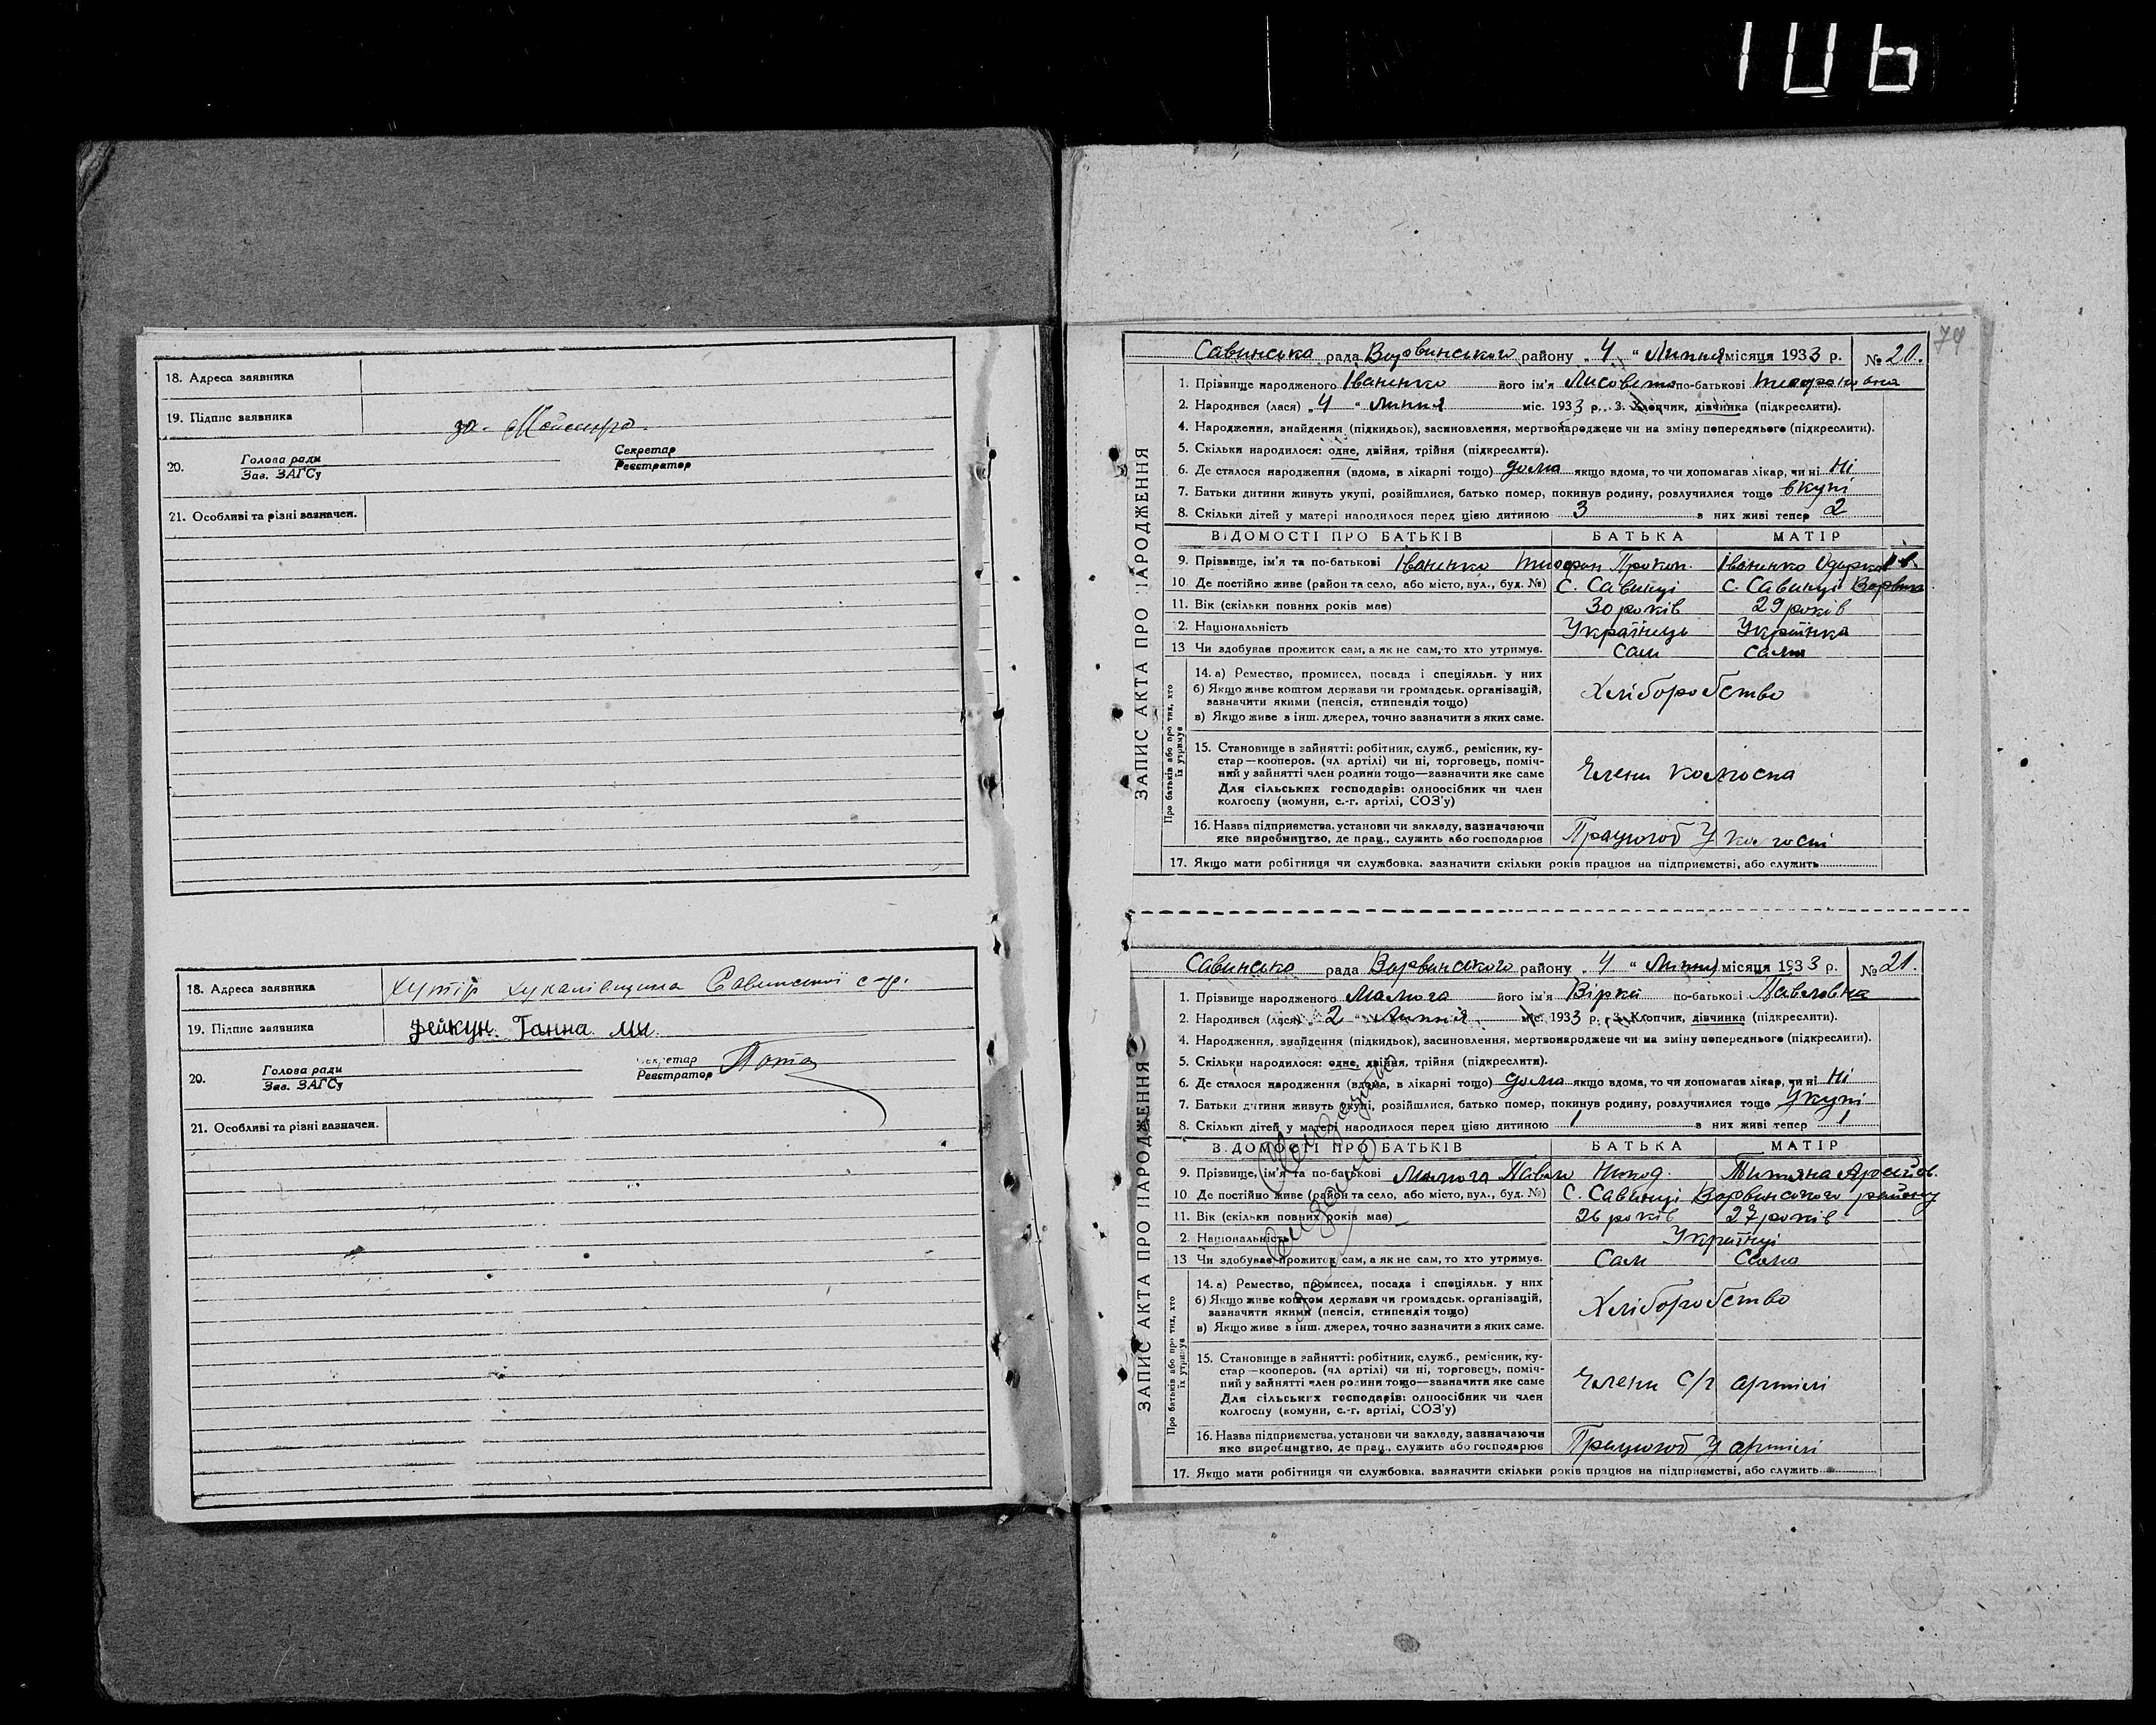 106
18. Адреса заявника
19. Підпис заявника за
20. Голова ради Секретар
Зав. ЗАГСу Реєстратор
21. Особливі та різні зазначен.
18. Адреса заявника хутір Савинської с/р.
19. Підпис заявника Фейкун. Ганна. Ми.
20. Голова ради Секретар
Зав. ЗАГСу Реєстратор
21. Особливі та різні зазначен.
74
ЗАПИС АКТА ПРО НАРОДЖЕННЯ
Савинська рада Варвинського району „4“ Липня місяця 1933 р. № 20.
1. Прізвище народженого Іваненко його ім'я Лисовета по-батькові
2. Народився (лася) „4“ липня міс. 1933 р. 3. Хлопчик, дівчинка (підкреслити).
4. Народження, знайдення (підкидьок), засиновлення, мертвонароджене чи на зміну попереднього (підкреслити).
5. Скільки народилося: одне, двійня, трійня (підкреслити).
6. Де сталося народження (вдома, в лікарні тощо) дома якщо вдома, то чи допомагав лікар, чи ні Ні
7. Батьки дитини живуть укупі, розійшлися, батько помер, покинув родину, розлучилися тощо вкупі
8. Скільки дітей у матері народилося перед цією дитиною 3 з них живі тепер 2
ВІДОМОСТІ ПРО БАТЬКІВ БАТЬКА МАТІР
9. Прізвище, ім'я та по-батькові Іваненко Прокоп. Іваненко Одарка
10 Де постійно живе (район та село, або місто, вул., буд. №) С. Савинці С. Савинці Варвин.
11. Вік (скільки повних років має) 30 років 29 років
2. Національність Українець Українка
13 Чи здобуває прожиток сам, а як не сам, то хто утримує. Сам Сама
Про батьків або про тих, хто їх утримує
14. а) Ремество, промисел, посада і спеціяльн. у них
б) Якщо живе коштом держави чи громадськ. організацій,
зазначити якими (пенсія, стипендія тощо) Хліборобство
в) Якщо живе з інш. джерел, точно зазначити з яких саме.
15. Становище в зайнятті: робітник, служб., ремісник, ку-
стар—кооперов. (чл артілі) чи ні, торговець, поміч-
ний у зайнятті член родини тощо—зазначити яке саме Члени колгоспа
Для сільських господарів: одноосібник чи член
колгоспу (комуни, с.-г. артілі, СОЗ'у)
16. Назва підприємства, установи чи закладу, зазначаючи
яке виробництво, де прац., служить або господарює Працюють У колгоспі
17. Якщо мати робітниця чи службовка, зазначити скільки років працює на підприємстві, або служить
ЗАПИС АКТА ПРО НАРОДЖЕННЯ
Савинська рада Варвинського району „4“ Липня місяця 1933 р. № 21.
1. Прізвище народженого Малюга його ім'я Вірка по-батькові Павловна
2. Народився (лася) „2“ Липня міс. 1933 р. 3. Хлопчик, дівчинка (підкреслити).
4. Народження, знайдення (підкидьок), засиновлення, мертвонароджене чи на зміну попереднього (підкреслити).
5. Скільки народилося: одне, двійня, трійня (підкреслити).
6. Де сталося народження (вдома, в лікарні тощо) дома якщо вдома, то чи допомагав лікар, чи ні Ні
7. Батьки дитини живуть укупі, розійшлися, батько помер, покинув родину, розлучилися тощо Укупі
8. Скільки дітей у матері народилося перед цією дитиною 1 з них живі тепер 1
ВІДОМОСТІ ПРО БАТЬКІВ БАТЬКА МАТІР
9. Прізвище, ім'я та по-батькові Малюга Павло
10 Де постійно живе (район та село, або місто, вул., буд. №) С. Савинці Варвинського району
11. Вік (скільки повних років має) 26 років 27 років
2 Національність Українці
13 Чи здобуває прожиток сам, а як не сам, то хто утримує. Сам Сама
Про батьків або про тих, хто їх утримує
14. а) Ремество, промисел, посада і спеціяльн. у них
б) Якщо живе коштом держави чи громадськ. організацій,
зазначити якими (пенсія, стипендія тощо) Хліборобство
в) Якщо живе з інш. джерел, точно зазначити з яких саме.
15. Становище в зайнятті: робітник, служб., ремісник, ку-
стар—кооперов. (чл артілі) чи ні, торговець, поміч-
ний у зайнятті член родини тощо—зазначити яке саме Члени С/г артілі
Для сільських господарів: одноосібник чи член
колгоспу (комуни, с.-г. артілі, СОЗ'у)
16. Назва підприємства, установи чи закладу, зазначаючи
яке виробництво, де прац., служить або господарює Працюють У артілі
17. Якщо мати робітниця чи службовка, зазначити скільки років працює на підприємстві, або служить